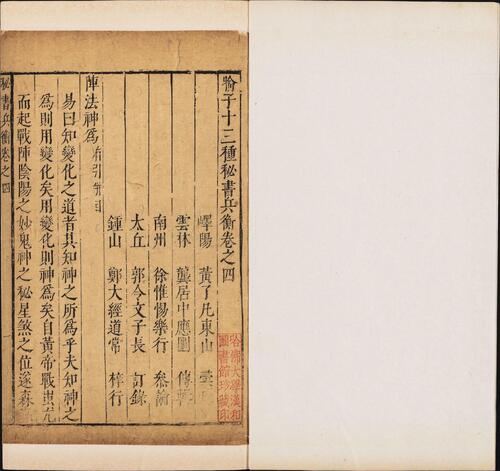 喻子十三種秘書兵衡卷之四
嶧陽 黃了凡東山
雲林 龔居中應圓
南州 徐惟惕樂行 叅
太丘 郭令文子長 訂錄
鍾山 鄭大經道常 梓行
陣法神爲
易曰知變化之道者其知神之所爲乎夫知神之
爲則用變化矣用變化則神爲矣自黃帝戰蚩尤
而起戰陣陰陽之妙鬼神之秘星煞之位遂森
秘書兵衡卷之四
哈佛大學漢和圖書館珍藏印